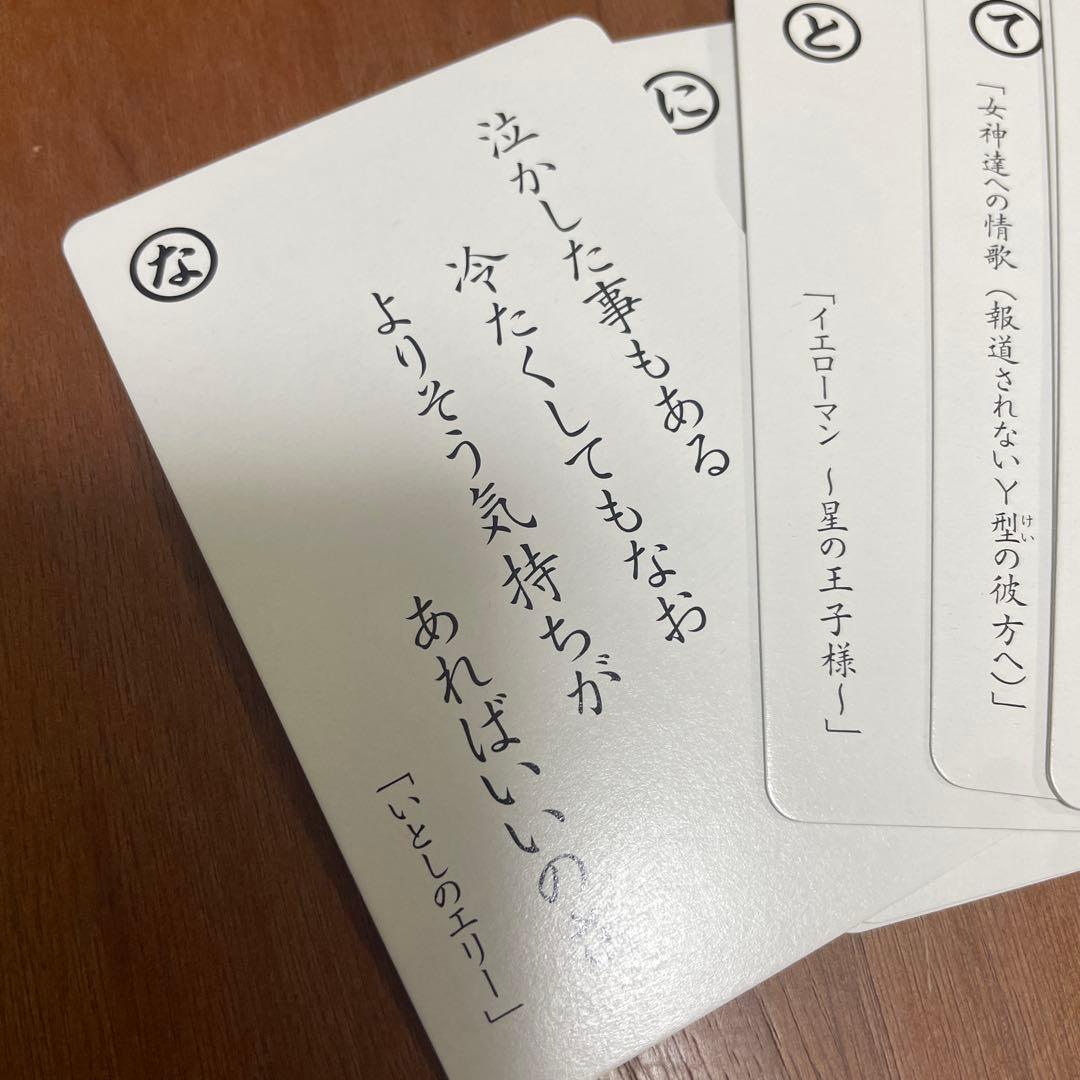 な
泣かした事もある
冷たくしてもなお
よりそう気持ちが
あればいいのさ
「いとしのエリー」
に
と
「イエローマン 〜星の王子様〜」
て
「女神達への情歌 （報道されないY型の彼方へ）」
けい